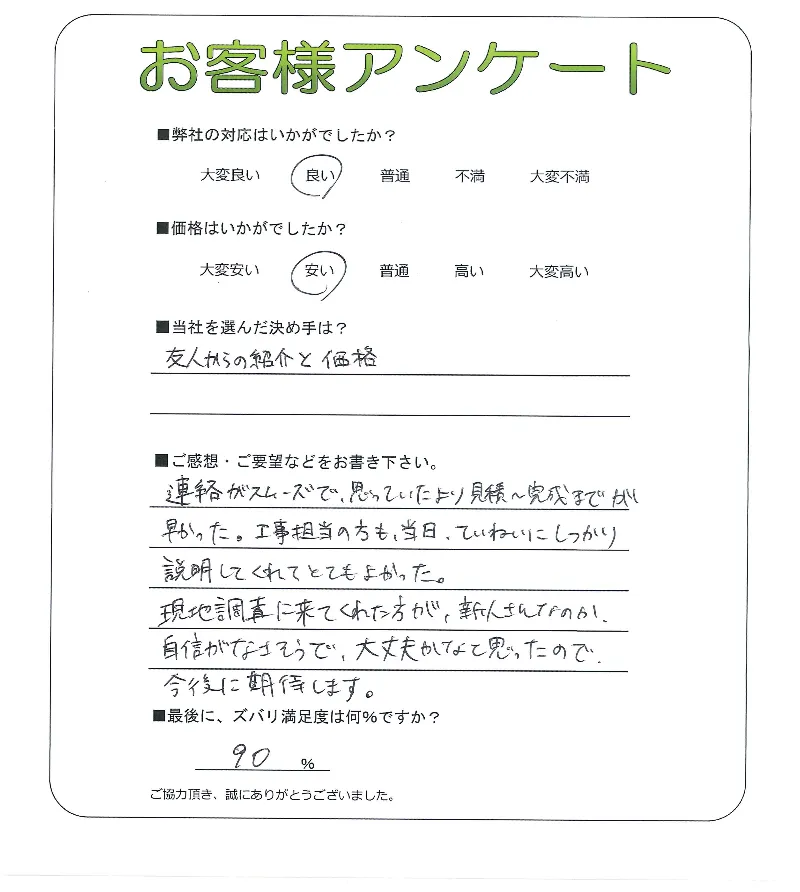 お客様アンケート
■弊社の対応はいかがでしたか？
大変良い 良い 普通 不満 大変不満
■価格はいかがでしたか？
大変安い 安い 普通 高い 大変高い
■当社を選んだ決め手は？
友人からの紹介と価格
■ご感想・ご要望などをお書き下さい。
連絡がスムーズで、思っていたより見積～完成までが
早かった。工事担当の方も、当日、ていねいにしっかり
説明してくれてとてもよかった。
現地調査に来てくれた方が、新人さんなのか、
自信がなさそうで、大丈夫かなと思ったので、
今後に期待します。
■最後に、ズバリ満足度は何%ですか？
90 %
ご協力頂き、誠にありがとうございました。